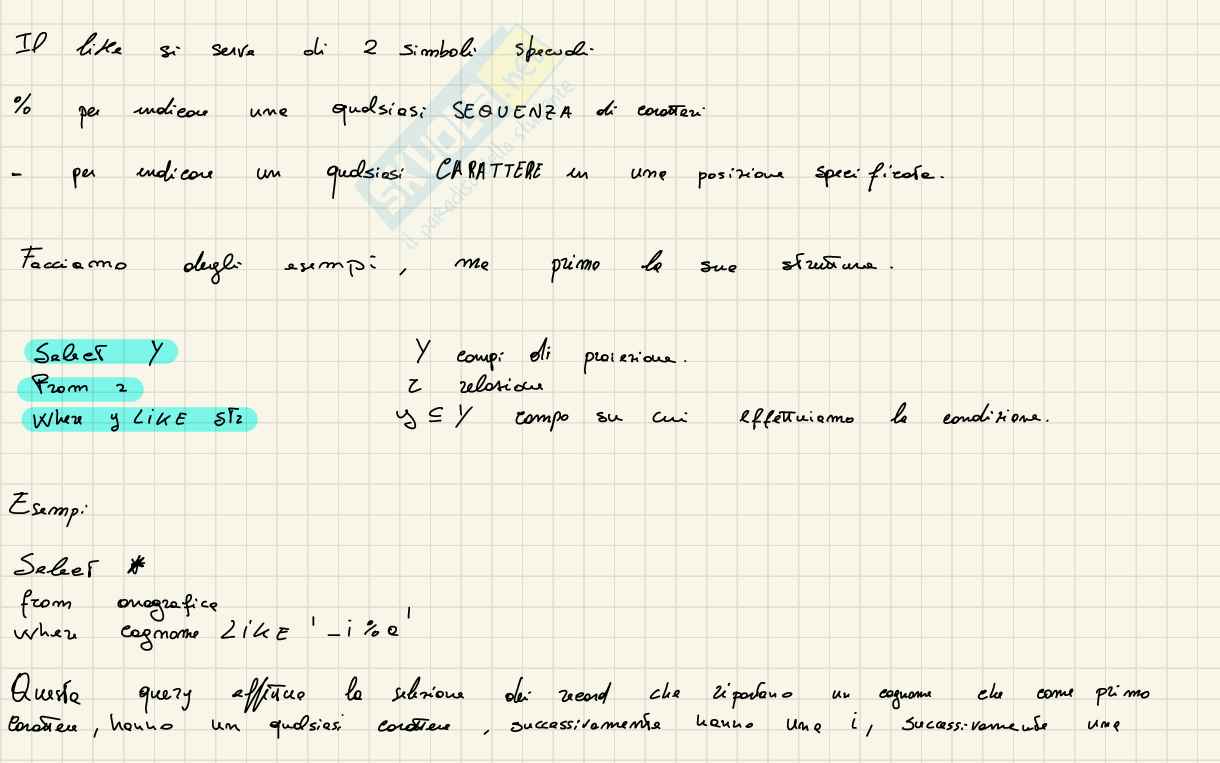 Il like si serve di 2 simboli speciali:
% per indicare una qualsiasi SEQUENZA di caratteri
_ per indicare un qualsiasi CARATTERE in una posizione specificata.
SKUOLA.net
il paradiso dello studente
Facciamo degli esempi, ma prima la sua struttura.
Select Y Y campi di proiezione.
From r r relazione
Where y LIKE str y ⊆ Y campo su cui effettuiamo la condizione.
Esempi
Select *
from anagrafica
where cognome LIKE '_i%a'
Questa query effettua la selezione dei record che riportano un cognome che come primo
carattere, hanno un qualsiasi carattere, successivamente hanno una i, successivamente una